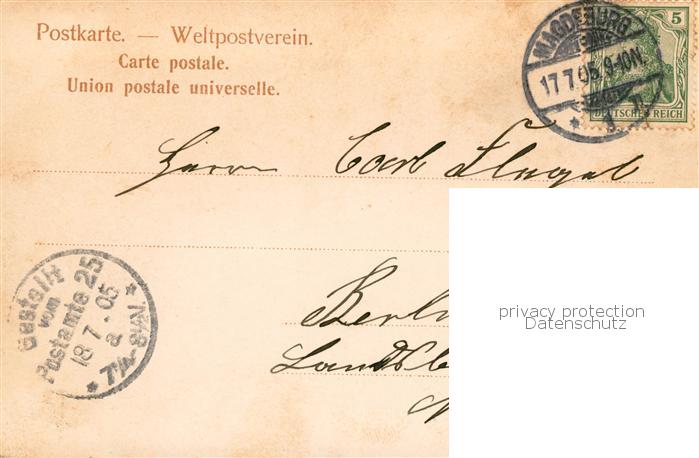 Postkarte. — Weltpostverein.
Carte postale.
Union postale universelle.
MAGDEBURG
17.7.05.9-10N.
5
DEUTSCHES REICH
Herrn Carl Flügel
Bestellt
vom
Postamte 25
18 7.05
a
7¼-8½N.
privacy protection
Datenschutz
Berlin
Landsb
N